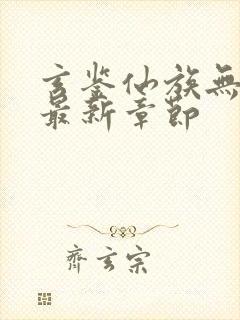 玄鉴仙族無
最新章節
齊玄宗